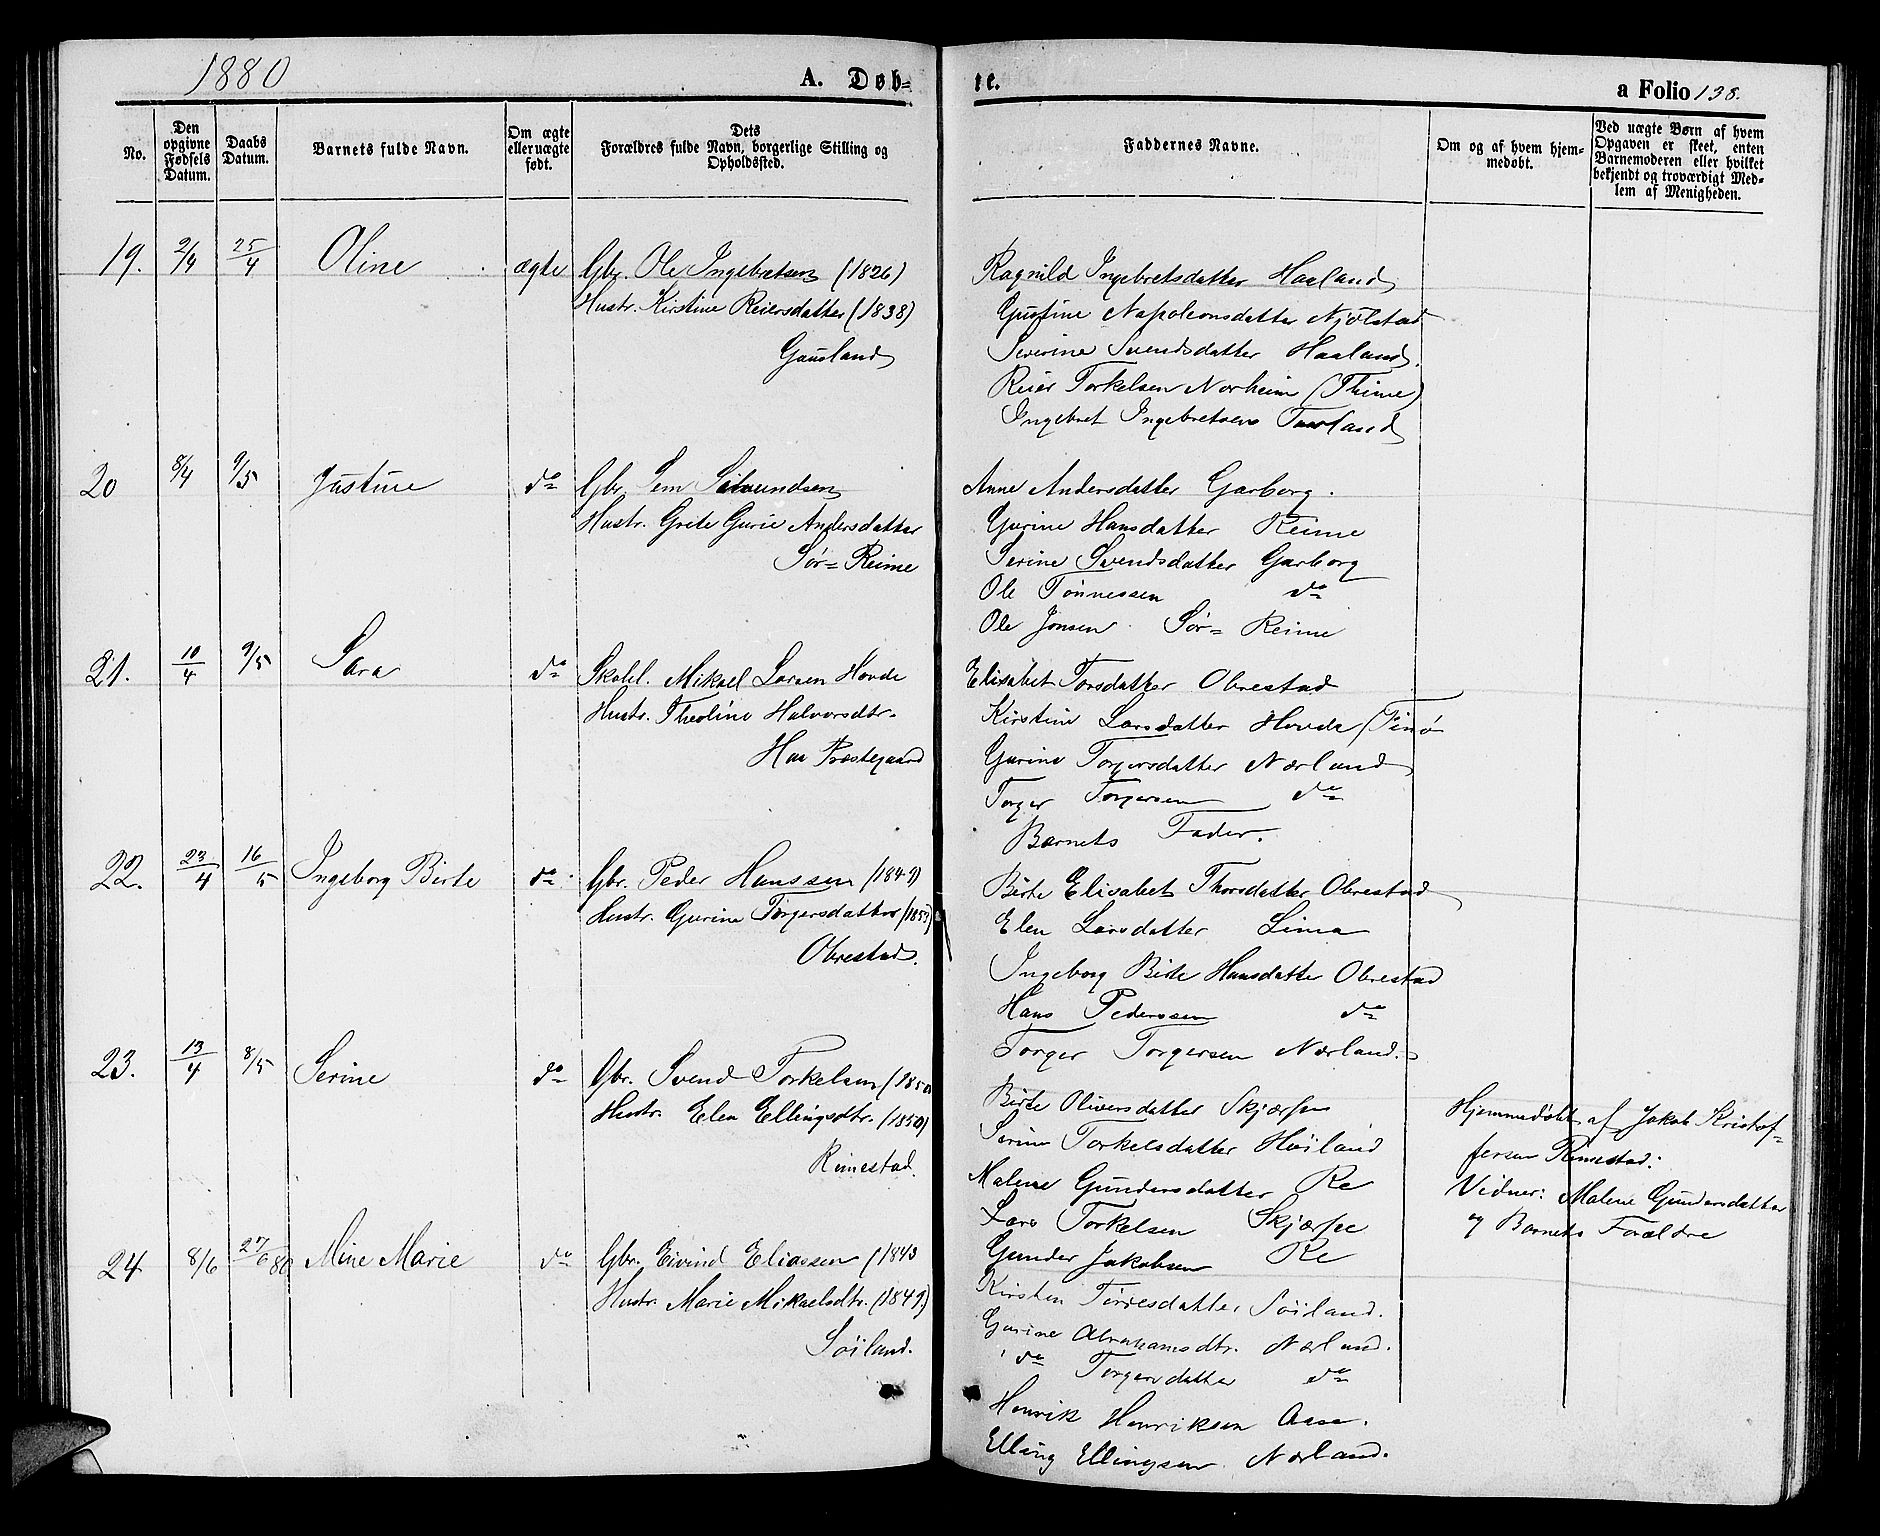 1880
A. Døb-
te.
a Folio 138.
No.
Den opgivne Fødsels Datum.
Daabs Datum.
Barnets fulde Navn.
Om ægte eller uægte født.
Dets Forældres fulde Navn, borgerlige Stilling og Opholdssted.
Faddernes Navne.
Om og af hvem hjem-
medøbt.
Ved uægte Børn af hvem
Opgaven er skeet, enten
Barnemoderen eller hvilket
bekjendt og troværdigt Med-
lem af Menigheden.
19. 2/4 25/4 Oline ægte Gbr. Ole Ingebretsen (1826)
Hustr. Kirstine Reiersdatter (1838)
Gausland
Ragnild Ingebretsdatter Haaland
Gustine Napoleonsdatter Njølstad
Severine Svendsdatter Haaland.
Reier Torkelsen Norheim (Thime)
Ingebret Ingebretsen Tuland
20 8/4 9/5 Justine do Gbr. Sem Salmundsen
Hustr. Grete Gurie Andersdatter
Sør-Reime
Anne Andersdatter Garborg.
Gurine Hansdatter Reime
Serine Svendsdatter Garborg
Ole Tønnessen do
Ole Jonsen Sør-Reime
21. 10/4 9/5 Sara do Skolel. Mikael Larsen Hovde
Hustr. Theoline Halvorsdtr.
Haa Præstegaard
Elisabet Torsdatter Obrestad
Kirstine Larsdatter Hovde (Finø
Gurine Torgersdatter Nærland
Torger Torgersen do
Barnets Fader.
22. 23/4 16/5 Ingeborg Birte do Gbr. Peder Hanssen (1849)
Hustr. Gurine Torgersdatter (1853)
Obrestad.
Birte Elisabet Thorsdatter Obrestad
Elen Larsdatter Lima
Ingeborg Birte Hansdatter Obrestad
Hans Pederssen do
Torger Torgersen Nærland.
23. 13/4 8/5 Serine do Gbr. Svend Torkelsen (1850
Hustr. Elen Ellingsdtr. (1850)
Rimestad.
Birte Oliversdatter Skjærpe
Serine Torkelsdatter Høiland
Malene Gundersdatter Re
Lars Torkelsen Skjærpe
Gunder Jakobsen Re
Hjemmedøbt af Jakob Kristof-
fersen Rimestad.
Vidner: Malene Gundersdatter
og Barnets Forældre
24 8/6 27/6 80 Mine Marie do Gbr. Eivind Eliassen (1843
Hustr. Marie Mikaelsdtr. (1849.)
Søiland.
Kirsten Torresdatter Søiland.
Gurine Abrahamsdtr. Nærland.
do Torgersdatter do
Henrik Henriksen Aase.
Elling Ellingsen Nærland.